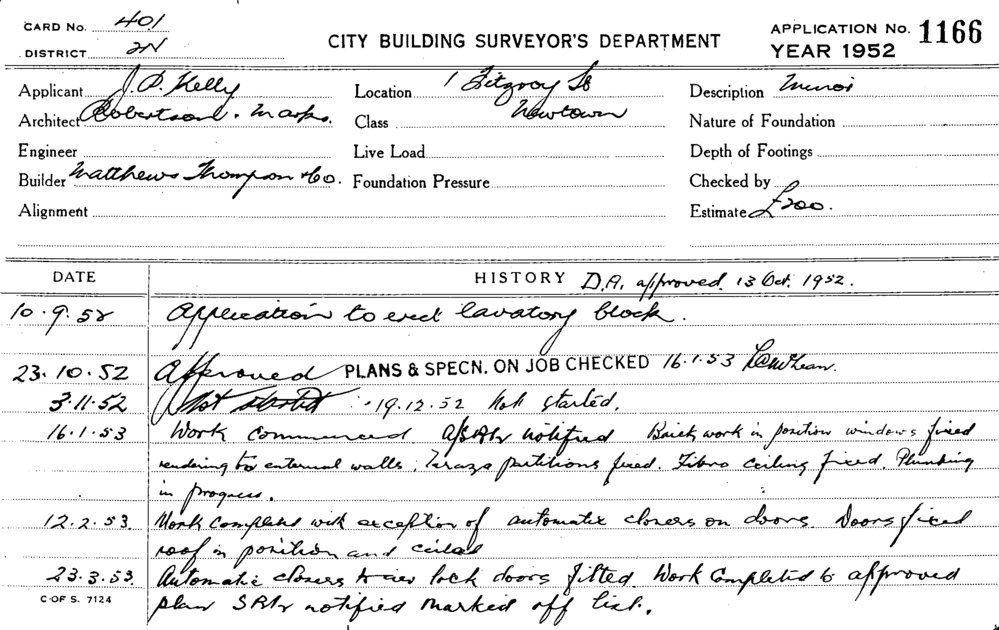 CARD No. 401
DISTRICT 2N
CITY BUILDING SURVEYOR'S DEPARTMENT
APPLICATION No. 1166
YEAR 1952
Applicant J. P. Kelly
Location 1 Fitzroy St
Description Minor
Architect Robertson. Marks.
Class Newtown
Nature of Foundation
Engineer
Live Load
Depth of Footings
Builder Matthews Thompson & Co.
Foundation Pressure
Checked by
Alignment
Estimate £200.
DATE
HISTORY D.A. approved. 13 Oct. 1952.
10.9.52 Application to erect lavatory block.
23.10.52 Approved PLANS & SPECN. ON JOB CHECKED 16.1.53
3.11.52 Not started 19.12.52 Not started.
16.1.53 Work commenced notified Brick work in position windows fixed
rendering to external walls. partitions fixed. Fibro ceiling fixed. Plumbing
in progress.
12.2.53. Work completed with exception of automatic closers on doors. Doors fixed
roof in position and ceiled
23.3.53. Automatic closers to air lock doors fitted. Work completed to approved
plan notified marked off list.
C OF S. 7124